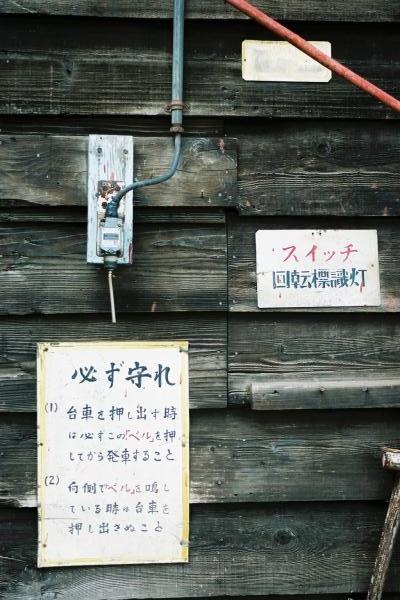 スイッチ
回転標識灯
必ず守れ
(1) 台車を押し出す時
は必ずこの「ベル」を押
してから発車すること
(2) 向側で「ベル」を鳴し
ている時は台車を
押し出さぬこと